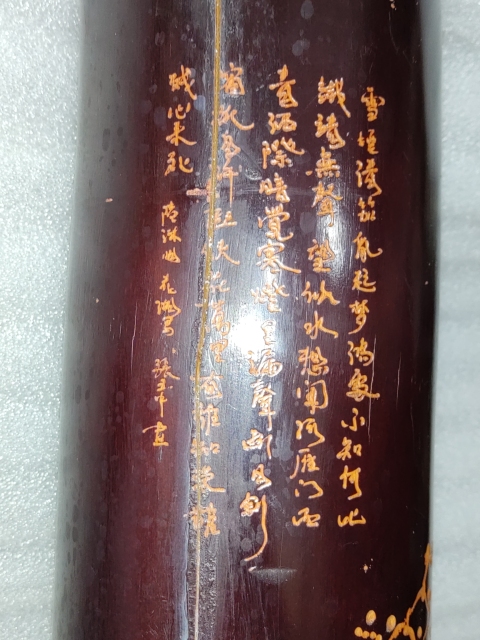 雪晓清笳乱起梦游处不知何地
铁骑无声望似水想关河雁门西
青海际睡觉寒灯里漏声断月斜
窗纸自许封侯在万里有谁知鬓虽
残心未死